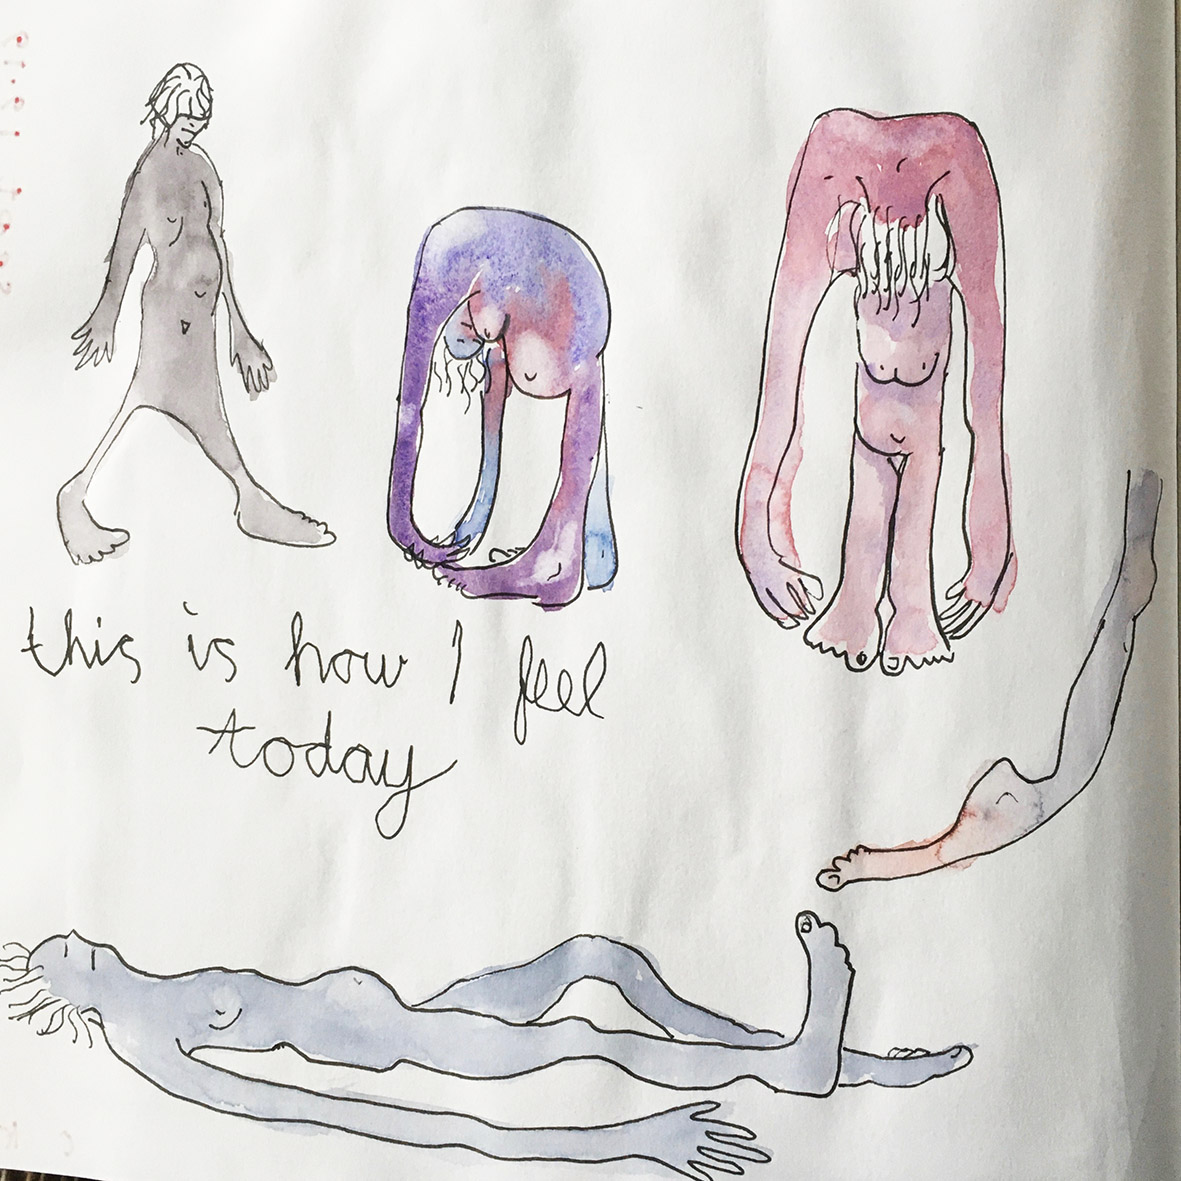 this is how I feel
today